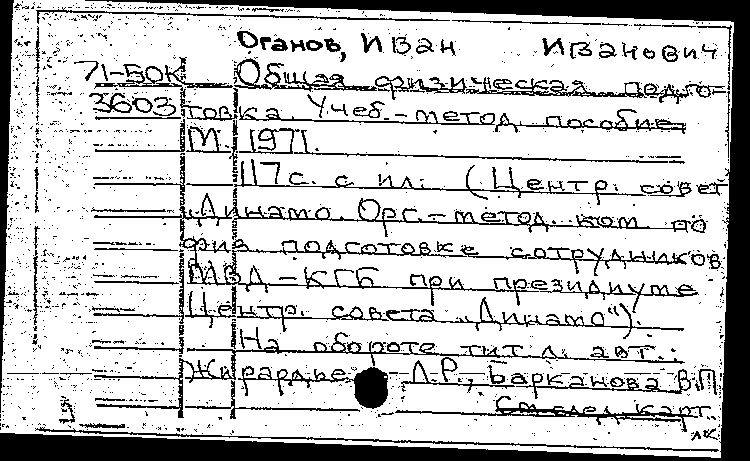 Оганов, Иван Иванович
71-БОК Общая физическая подго-
3603 товка. Учеб.-метод. пособие.
М. 1971.
117 с. с ил. (Центр. совет
"Динамо. Орг.-метод. ком. по
физ. подготовке сотрудников
МВД-КГБ при президиуме
Центр. совета "Динамо").
На обороте тит. л. авт.:
Л.Р., Барканова В.П.
См. след. карт.
лк